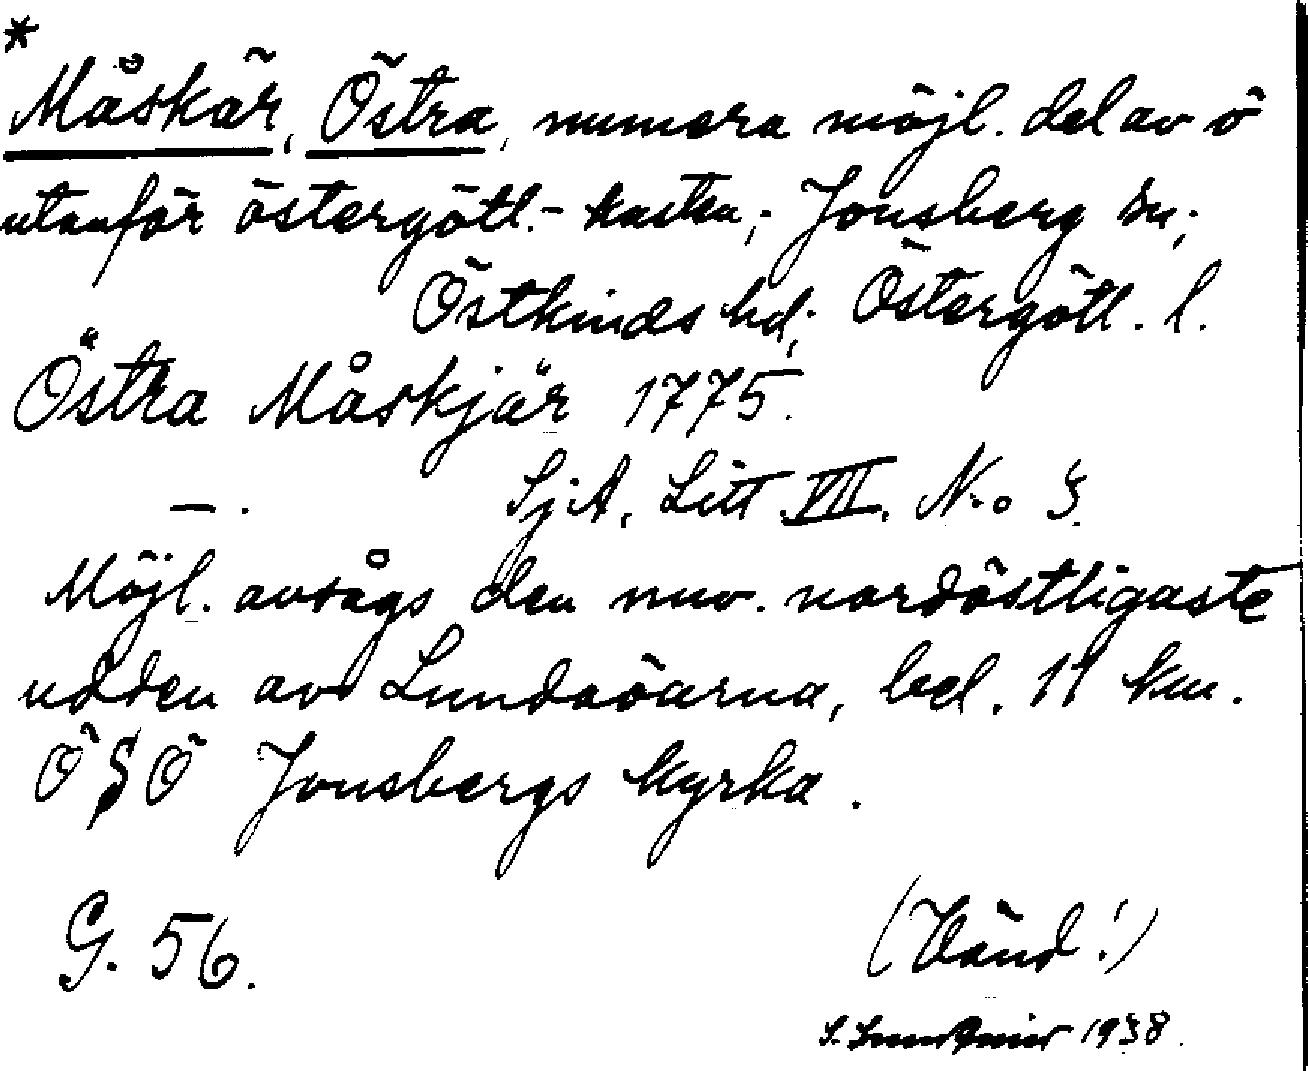 *
Måskär, Östra, numera möjl. del av ö
utanför östergötl.-kusten; Jonsberg sn;
Östkinds hd; Östergötl. l.
Östra Måskjär 1775.
—. Sj.A. Litt. VII. No
Möjl. avsågs den nuv. nordöstligaste
udden av Lundaöarna, bel. 11 km.
Ö S Ö Jonsbergs kyrka.
G. 56. (Vänd!)
1938.